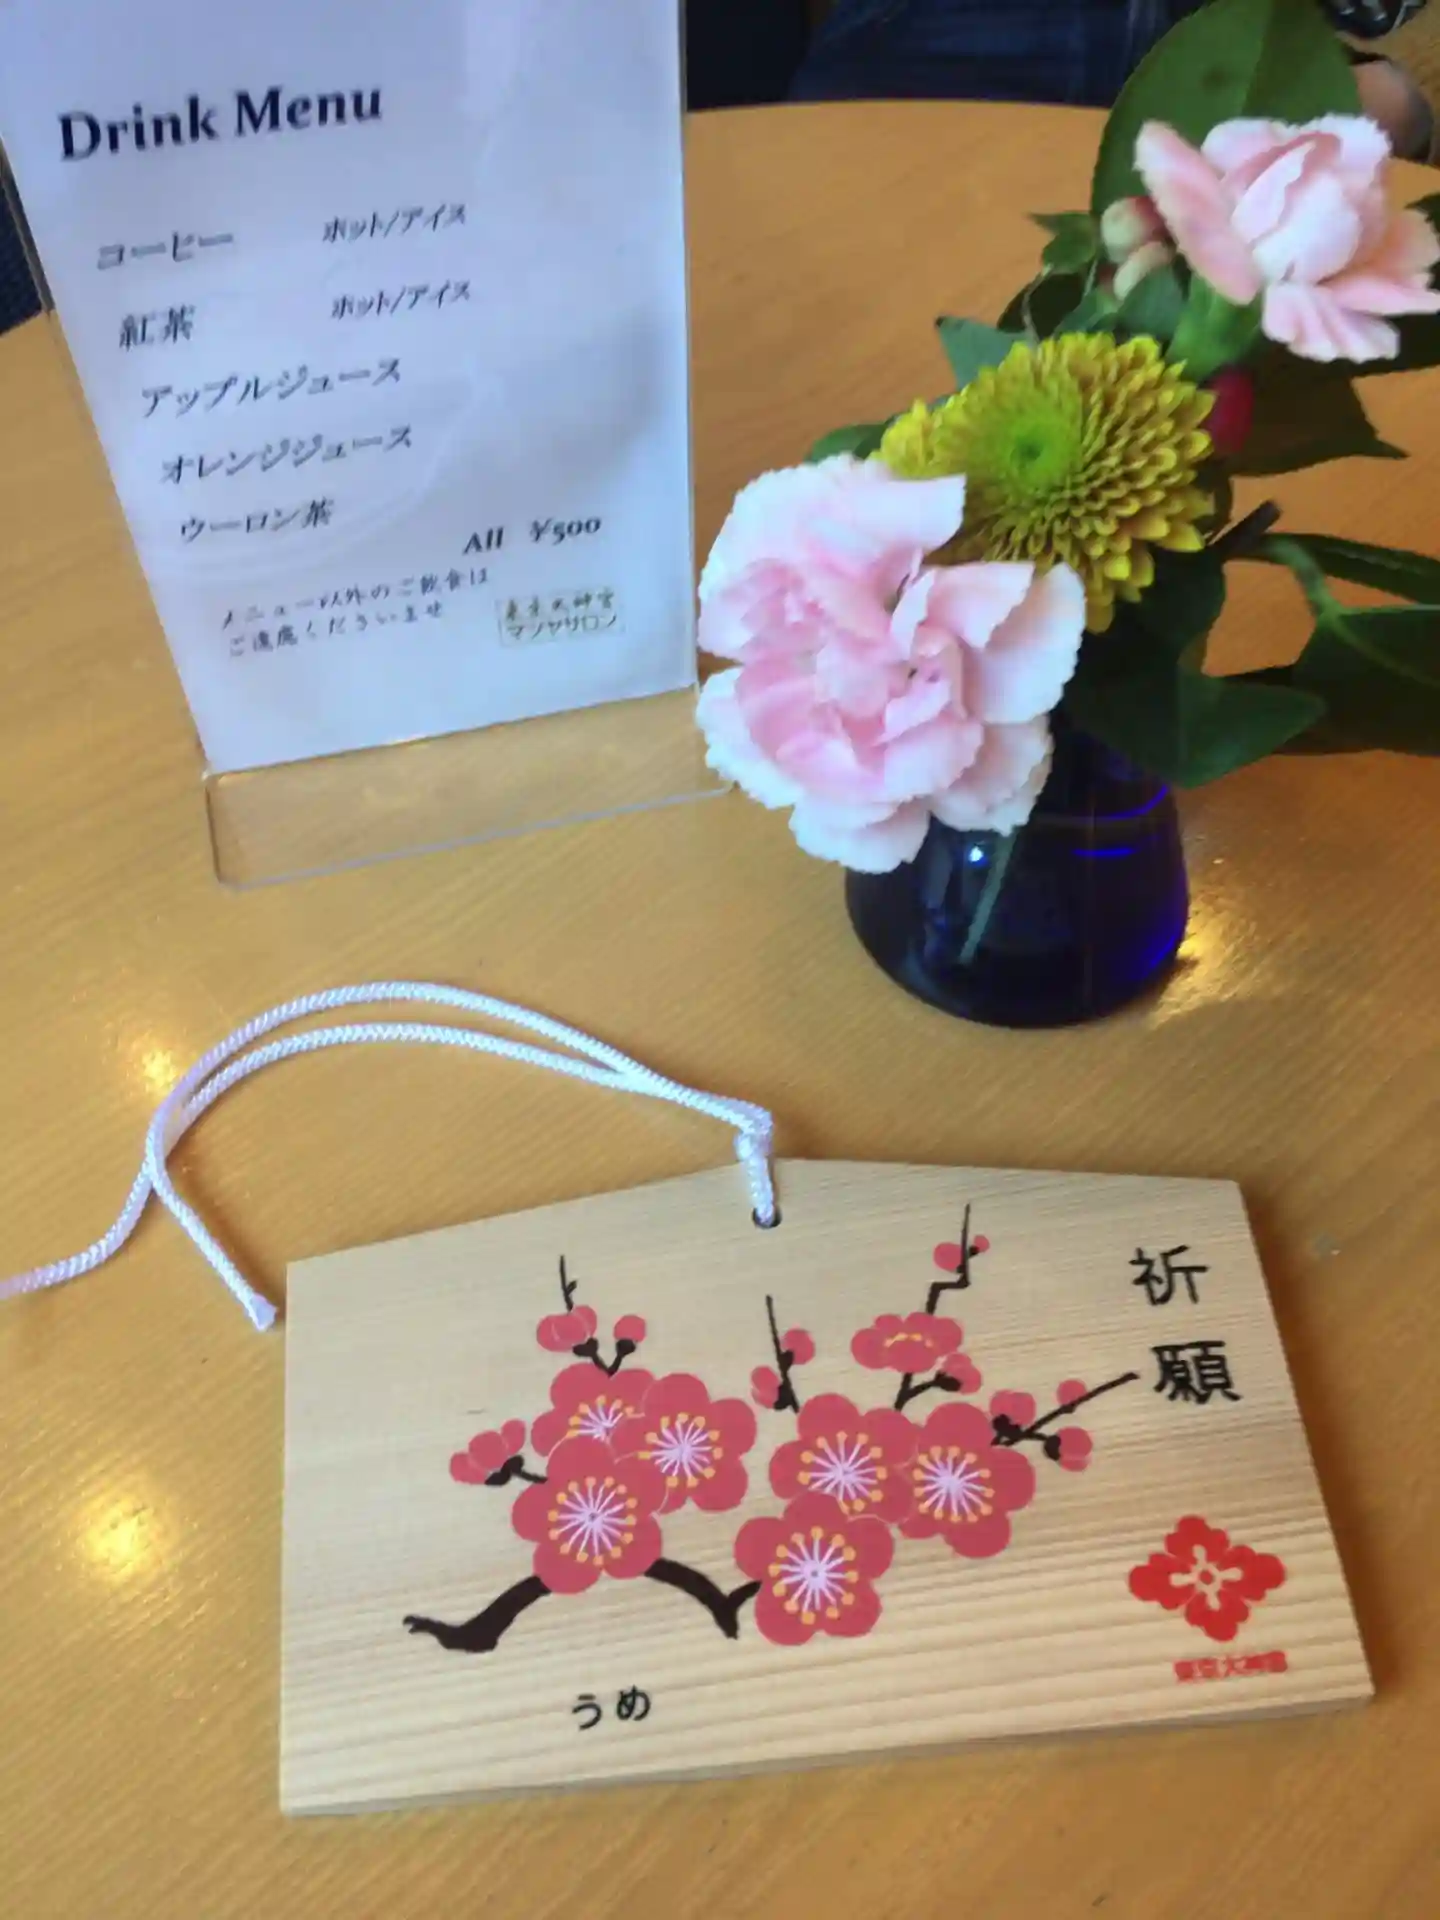 Drink Menu
コーヒー ホット/アイス
紅茶 ホット/アイス
アップルジュース
オレンジジュース
ウーロン茶
All ¥500
メニュー以外のご飲食は
ご遠慮くださいませ
東京大神宮
マツヤサロン
祈願
東京大神宮
うめ